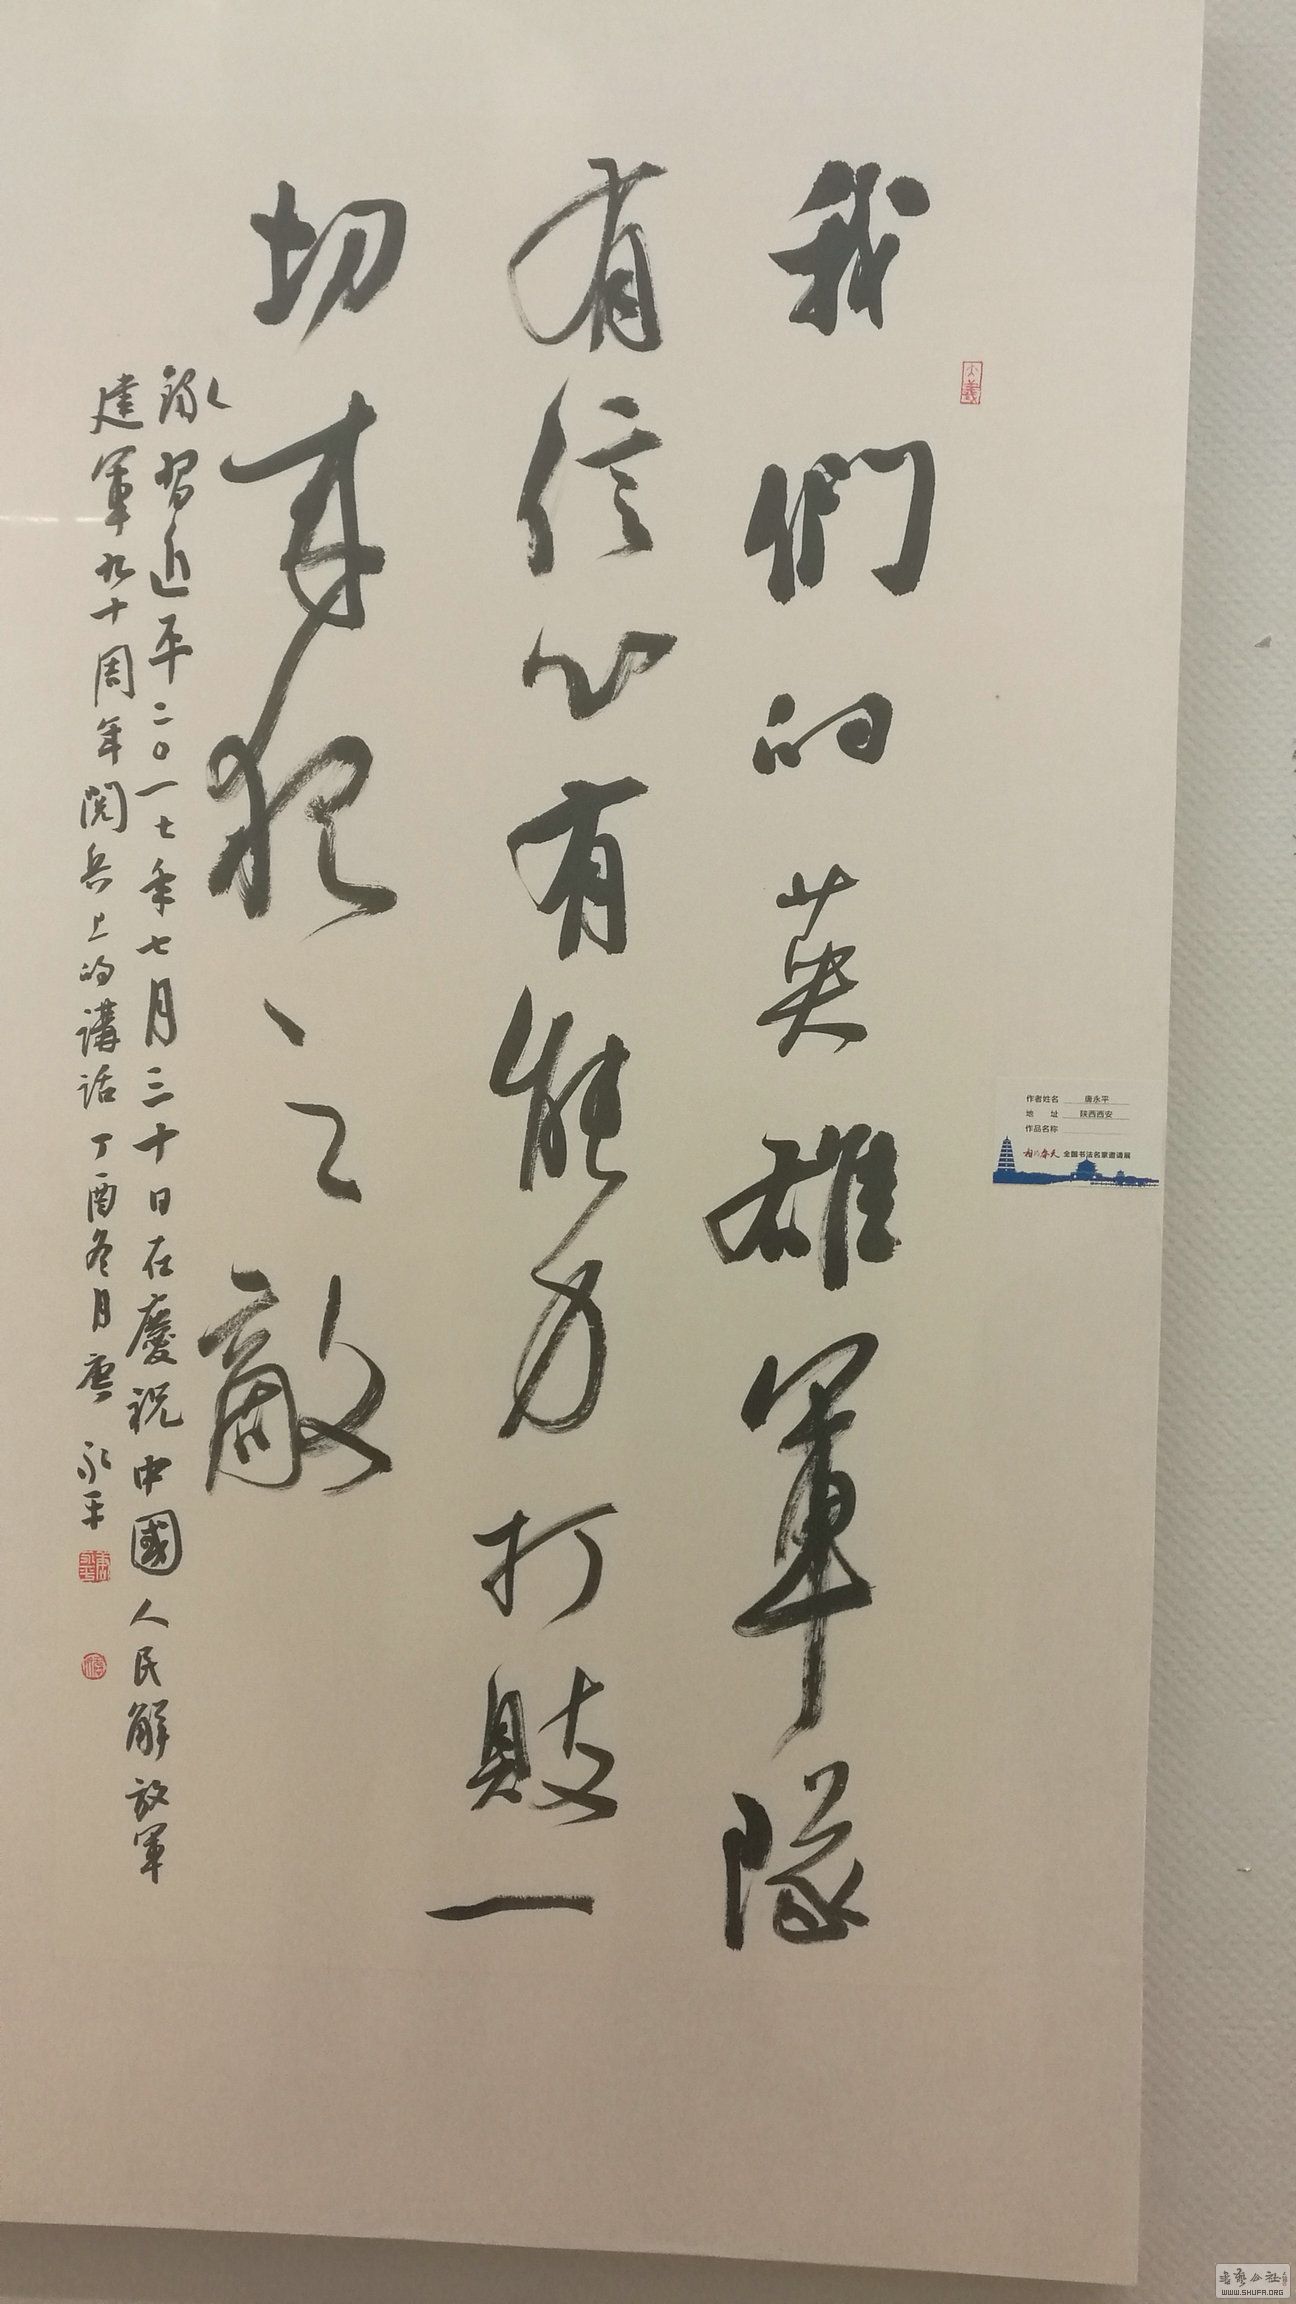 我們的英雄軍隊
有信心有能力打敗一
切来犯之敵
录習近平二〇一七年七月三十日在慶祝中國人民解放軍
建軍九十周年閱兵上的講话丁酉冬月唐永平
作者姓名 唐永平
地址 陕西西安
作品名称
相约春天 全国书法名家邀请展
书艺公社
WWW.SHUFA.ORG